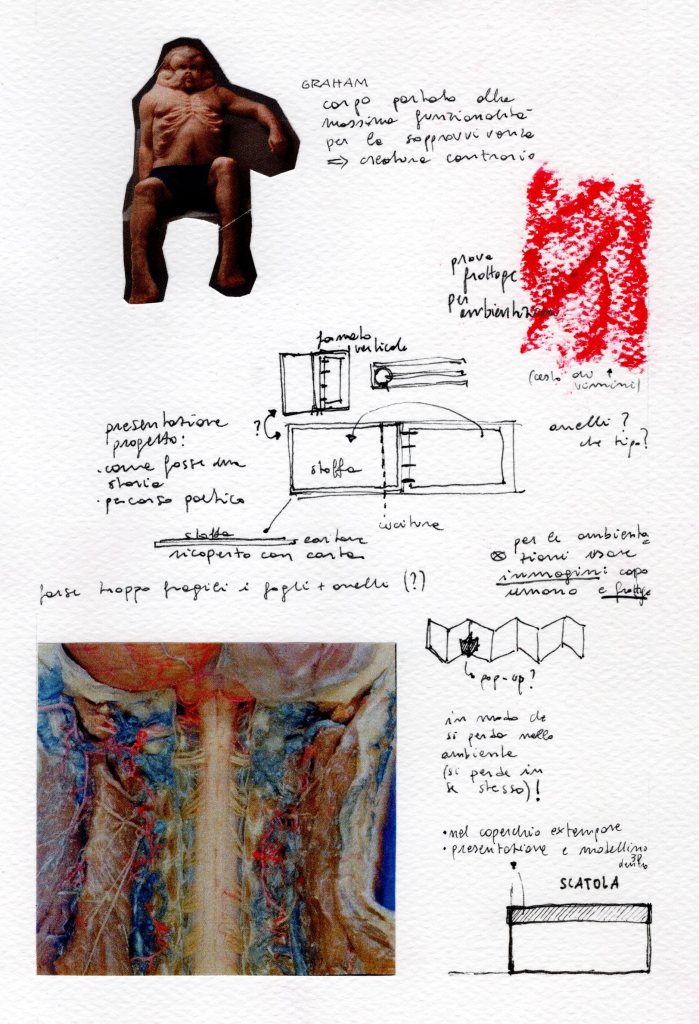 GRAHAM
corpo portato alla
massima funzionalità
per la sopravvivenza
⇒ creatura contrario
prova
frottage
per
ambientazione
(cesto di
vimini)
formato
verticale
presentazione
progetto:
• come fosse una
storia
• percorso poetico
?
stoffa
anelli?
che tipo?
cucitura
stoffa
cartone
ricoperto con carta
per le ambienta
zioni usare
immagini: corpo
umano e frottage
forse troppo fragili i fogli + anelli (?)
pop-up?
in modo che
si perda nello
ambiente
(si perde in
se stesso)!
• nel coperchio extempore
• presentazione e modellino
3D
dentro
SCATOLA